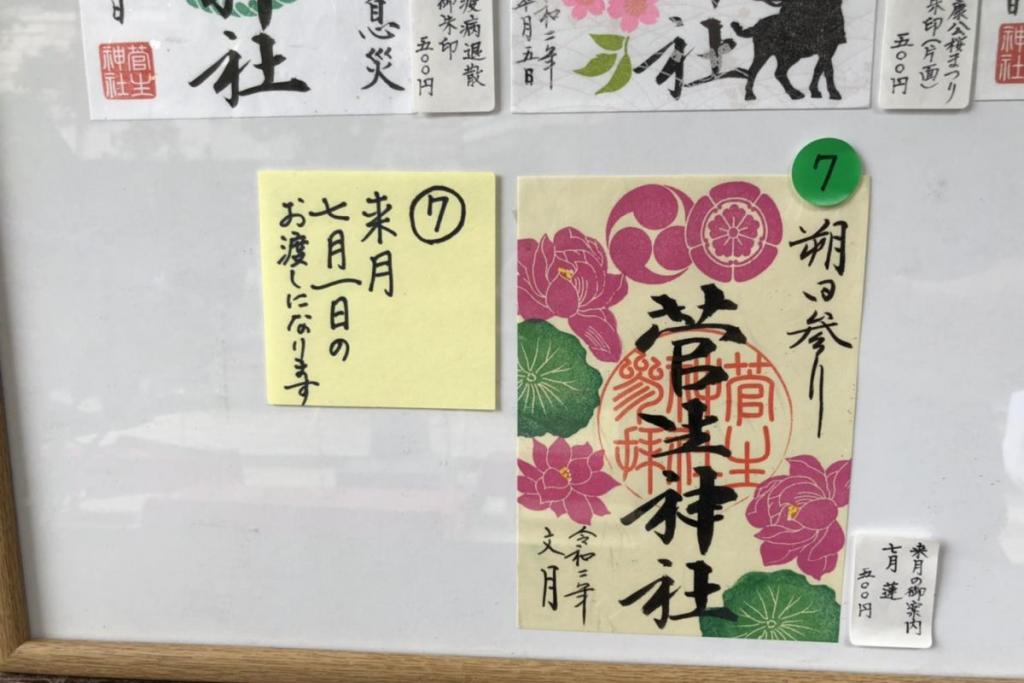 神社
息災
菅生
神社
疫病退散
御朱印
五〇〇円
社
令和二年
年月五日
康公桜まつり
朱印(片面)
五〇〇円
日
⑦
来月
七月一日の
お渡しになります
7
朔日参り
菅生神社
菅生
神社
参拝
令和二年
文月
来月の御案内
七月 蓮
五〇〇円